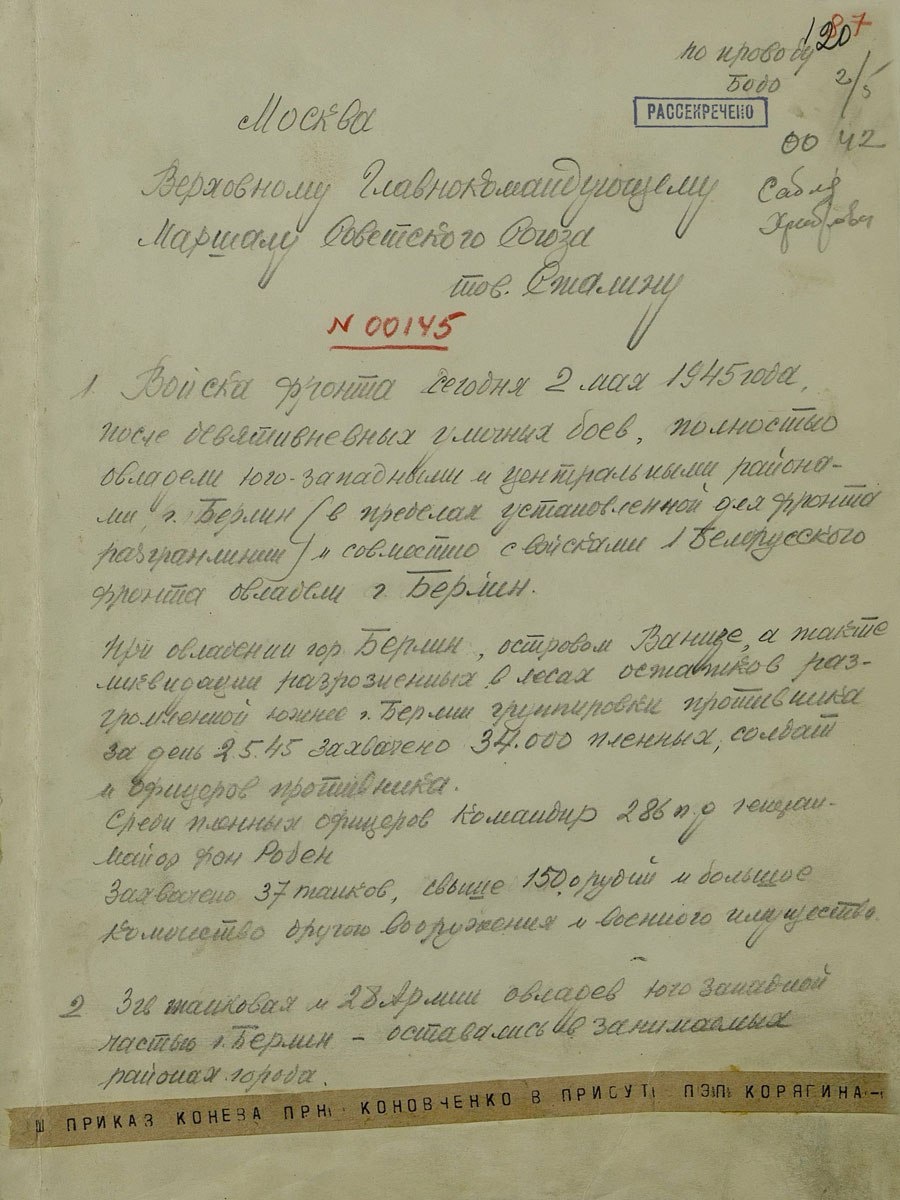 87
120
по проводу
Бодо
2/5
РАССЕКРЕЧЕНО
00 42
Москва
Верховному Главнокомандующему
Маршалу Советского Союза
тов. Сталину
N 00145
1 Войска фронта сегодня 2 мая 1945 года,
после девятидневных уличных боев, полностью
овладели юго-западными и центральными района-
ми г. Берлин (в пределах установленной для фронта
разгранлинии) и совместно с войсками 1 Белорусского
фронта овладели г. Берлин.
При овладении гор. Берлин, островом Ванзе, а также
ликвидации разрозненных в лесах остатков раз-
громленной южнее г. Берлин группировки противника
за день 2.5.45 захвачено 34.000 пленных, солдат
и офицеров противника.
Среди пленных офицеров командир 286 п.д генерал-
майор фон Робен
Захвачено 37 танков, свыше 150 орудий и большое
количество другого вооружения и военного имущества.
2 3 гв танковая и 28 Армии овладев юго западной
частью г. Берлин - оставались в занимаемых
районах города.
Ш ПРИКАЗ КОНЕВА ПРН КОНОВЧЕНКО В ПРИСУТ ПЭП КОРЯГИНА-